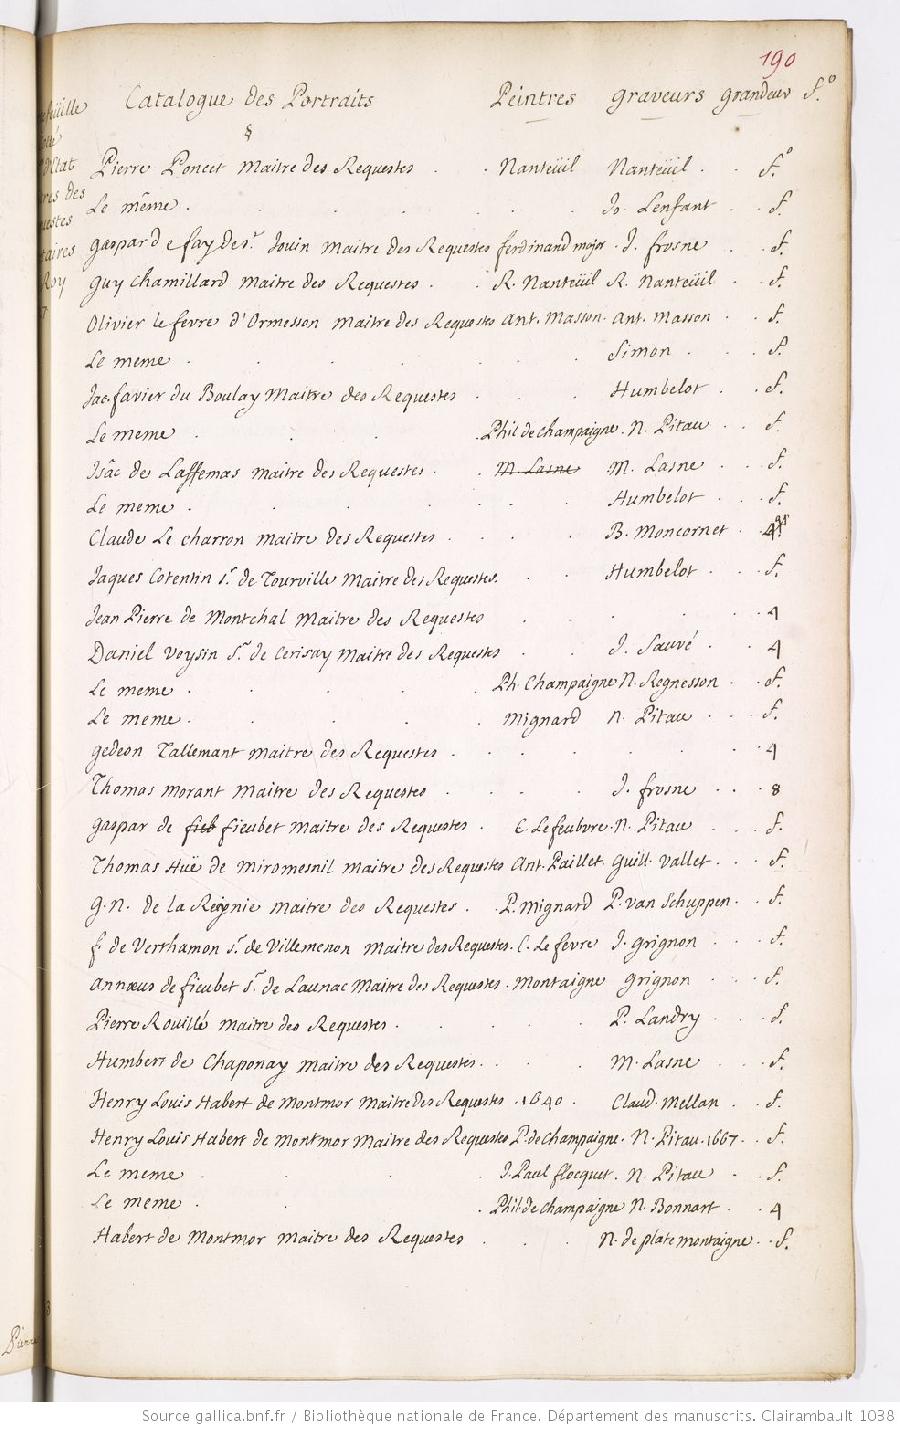 190
Catalogue des Portraits Peintres graveurs grandeur f.º
§
Pierre Poncet Maitre des Requestes . . Nanteüil Nanteüil . . f.º
Le même . . . . . . . Jo. Lenfant . . f.
gaspard e fay de s.r Jouin maitre des Requestes ferdinand major . J. frosne . . f.
Guy Chamillard Maitre des Requestes . . R. Nanteüil R. Nanteüil . . f.
Olivier le fevre d'Ormesson Maitre des Requestes Ant. Masson . Ant. Masson . . f.
Le meme . . . . . . Simon . . . f.
Jac. favier du Boulay Maitre des Requestes . . . Humbelot . . f.
Le meme . . . . Phil de Champaigne . N. Pitau . . f.
Isâc de Laffemas maitre des Requestes . . M. Lasne M. Lasne . . f.
Le meme . . . . . . Humbelot . . f.
Claude Le charron maitre des Requestes . . . . B. Moncornet . . 4
Jaques Cotentin s.r de Tourville Maitre des Requestes . . . Humbelot . . f.
Jean Pierre de Montchal Maitre des Requestes . . . . . 4
Daniel Voysin S.r de Cerisay Maitre des Requestes . . J. Sauvé . . 4
Le meme . . . . Ph. Champaigne N. Regnesson . . f.
Le meme . . . . . Mignard N. Pitau . . . f.
gedeon Tallemant maitre des Requestes . . . . . . . 4
Thomas morant Maitre des Requestes . . . . J. frosne . . . 8
gaspar de fieb fieubet Maitre des Requestes . C Lefeubvre . N. Pitau . . f.
Thomas Huë de Miromesnil Maitre des Requestes Ant. Paillet . Guill. Vallet . . . f.
G. N. de la Reynie Maitre des Requestes . . P. Mignard P. van Schuppen . . f.
f. de Verthamon s.r de Villemenon Maitre des Requestes . C. Le fevre J. Grignon . . f.
Annœus de fieubet S.r de Launac Maitre des Requestes . Montaigne Grignon . . . f.
Pierre Rouillé Maitre des Requestes . . . . P. Landry . . . f.
Humbert de Chaponay Maitre des Requestes . . . . M. Lasne . . . f.
Henry Louis Habert de Montmor Maitre des Requestes . 1640 . Claud. Mellan . . f.
Henry Louis Habert de Montmor Maitre des Requestes P. de Champaigne . N. Pitau . 1667 . . f.
Le meme . . . J. Paul flocquet . N. Pitau . . f.
Le meme . . . . Phil de Champaigne N. Bonnart . . 4
Habert de Montmor Maitre des Requestes . . . N. de plate montaigne . . f.
Source gallica.bnf.fr / Bibliothèque nationale de France. Département des manuscrits. Clairambault 1038